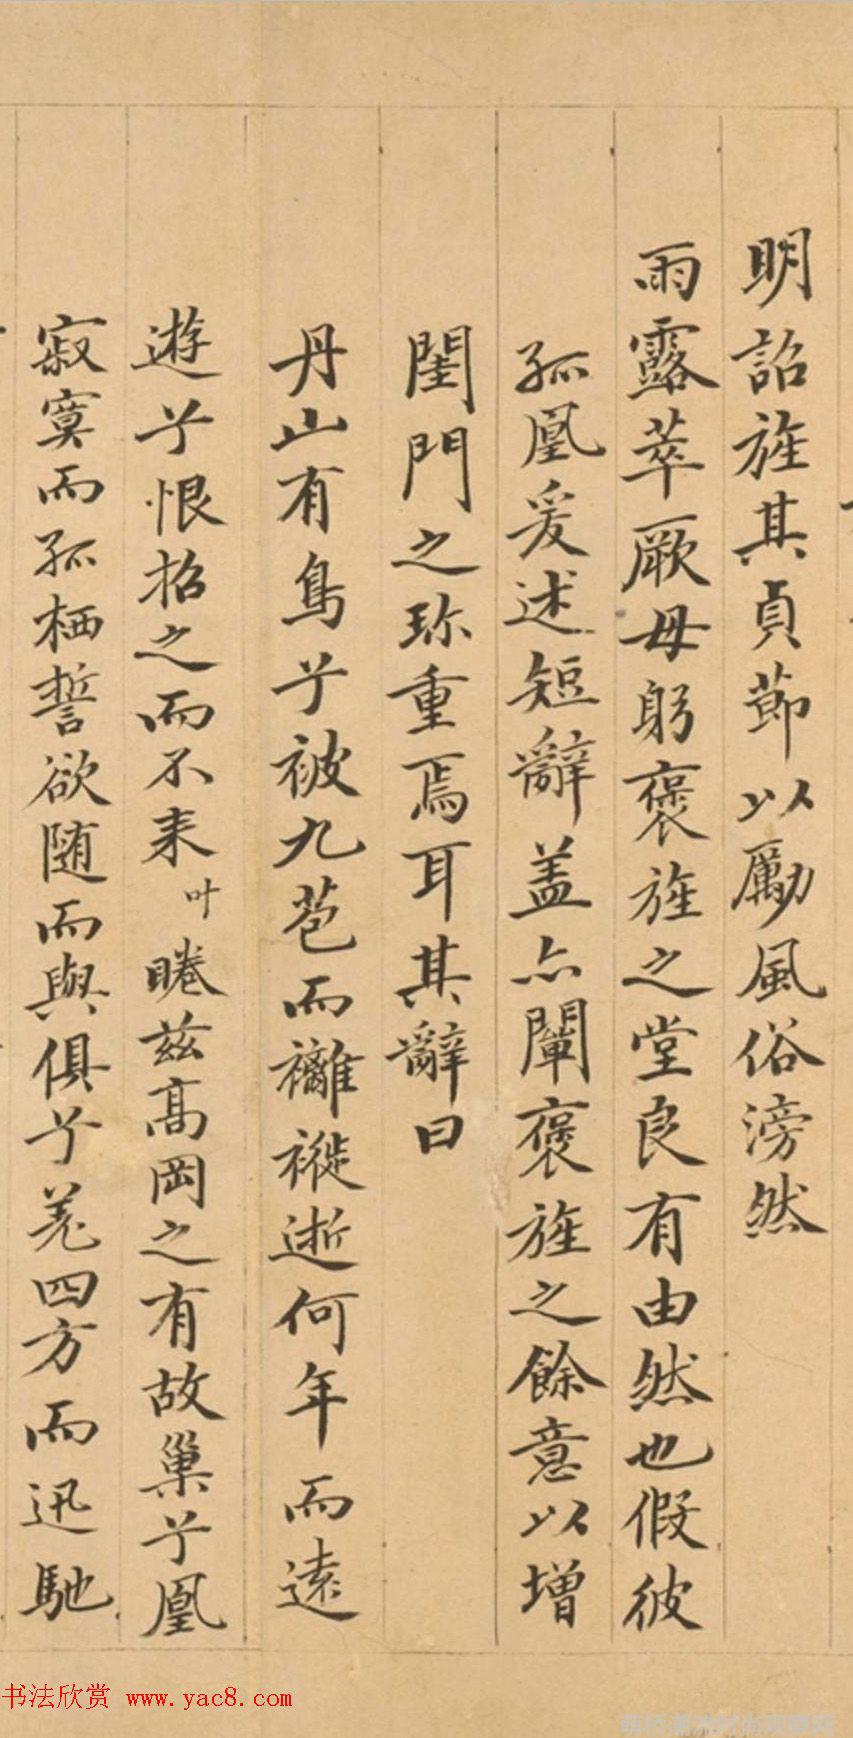 明詔旌其貞節以勵風俗滂然
雨露萃厥母躬褒旌之堂良有由然也假彼
孤凰爰述短辭盖亦闡褒旌之餘意以增
閨門之珎重焉耳其辭曰
丹山有鳥兮被九苞而襹褷逝何年而遠
遊兮恨招之而不来叶睠兹髙岡之有故巢兮凰
寂寞而孤栖誓欲随而與俱兮羌四方而迅馳
书法欣赏 www.yac8.com